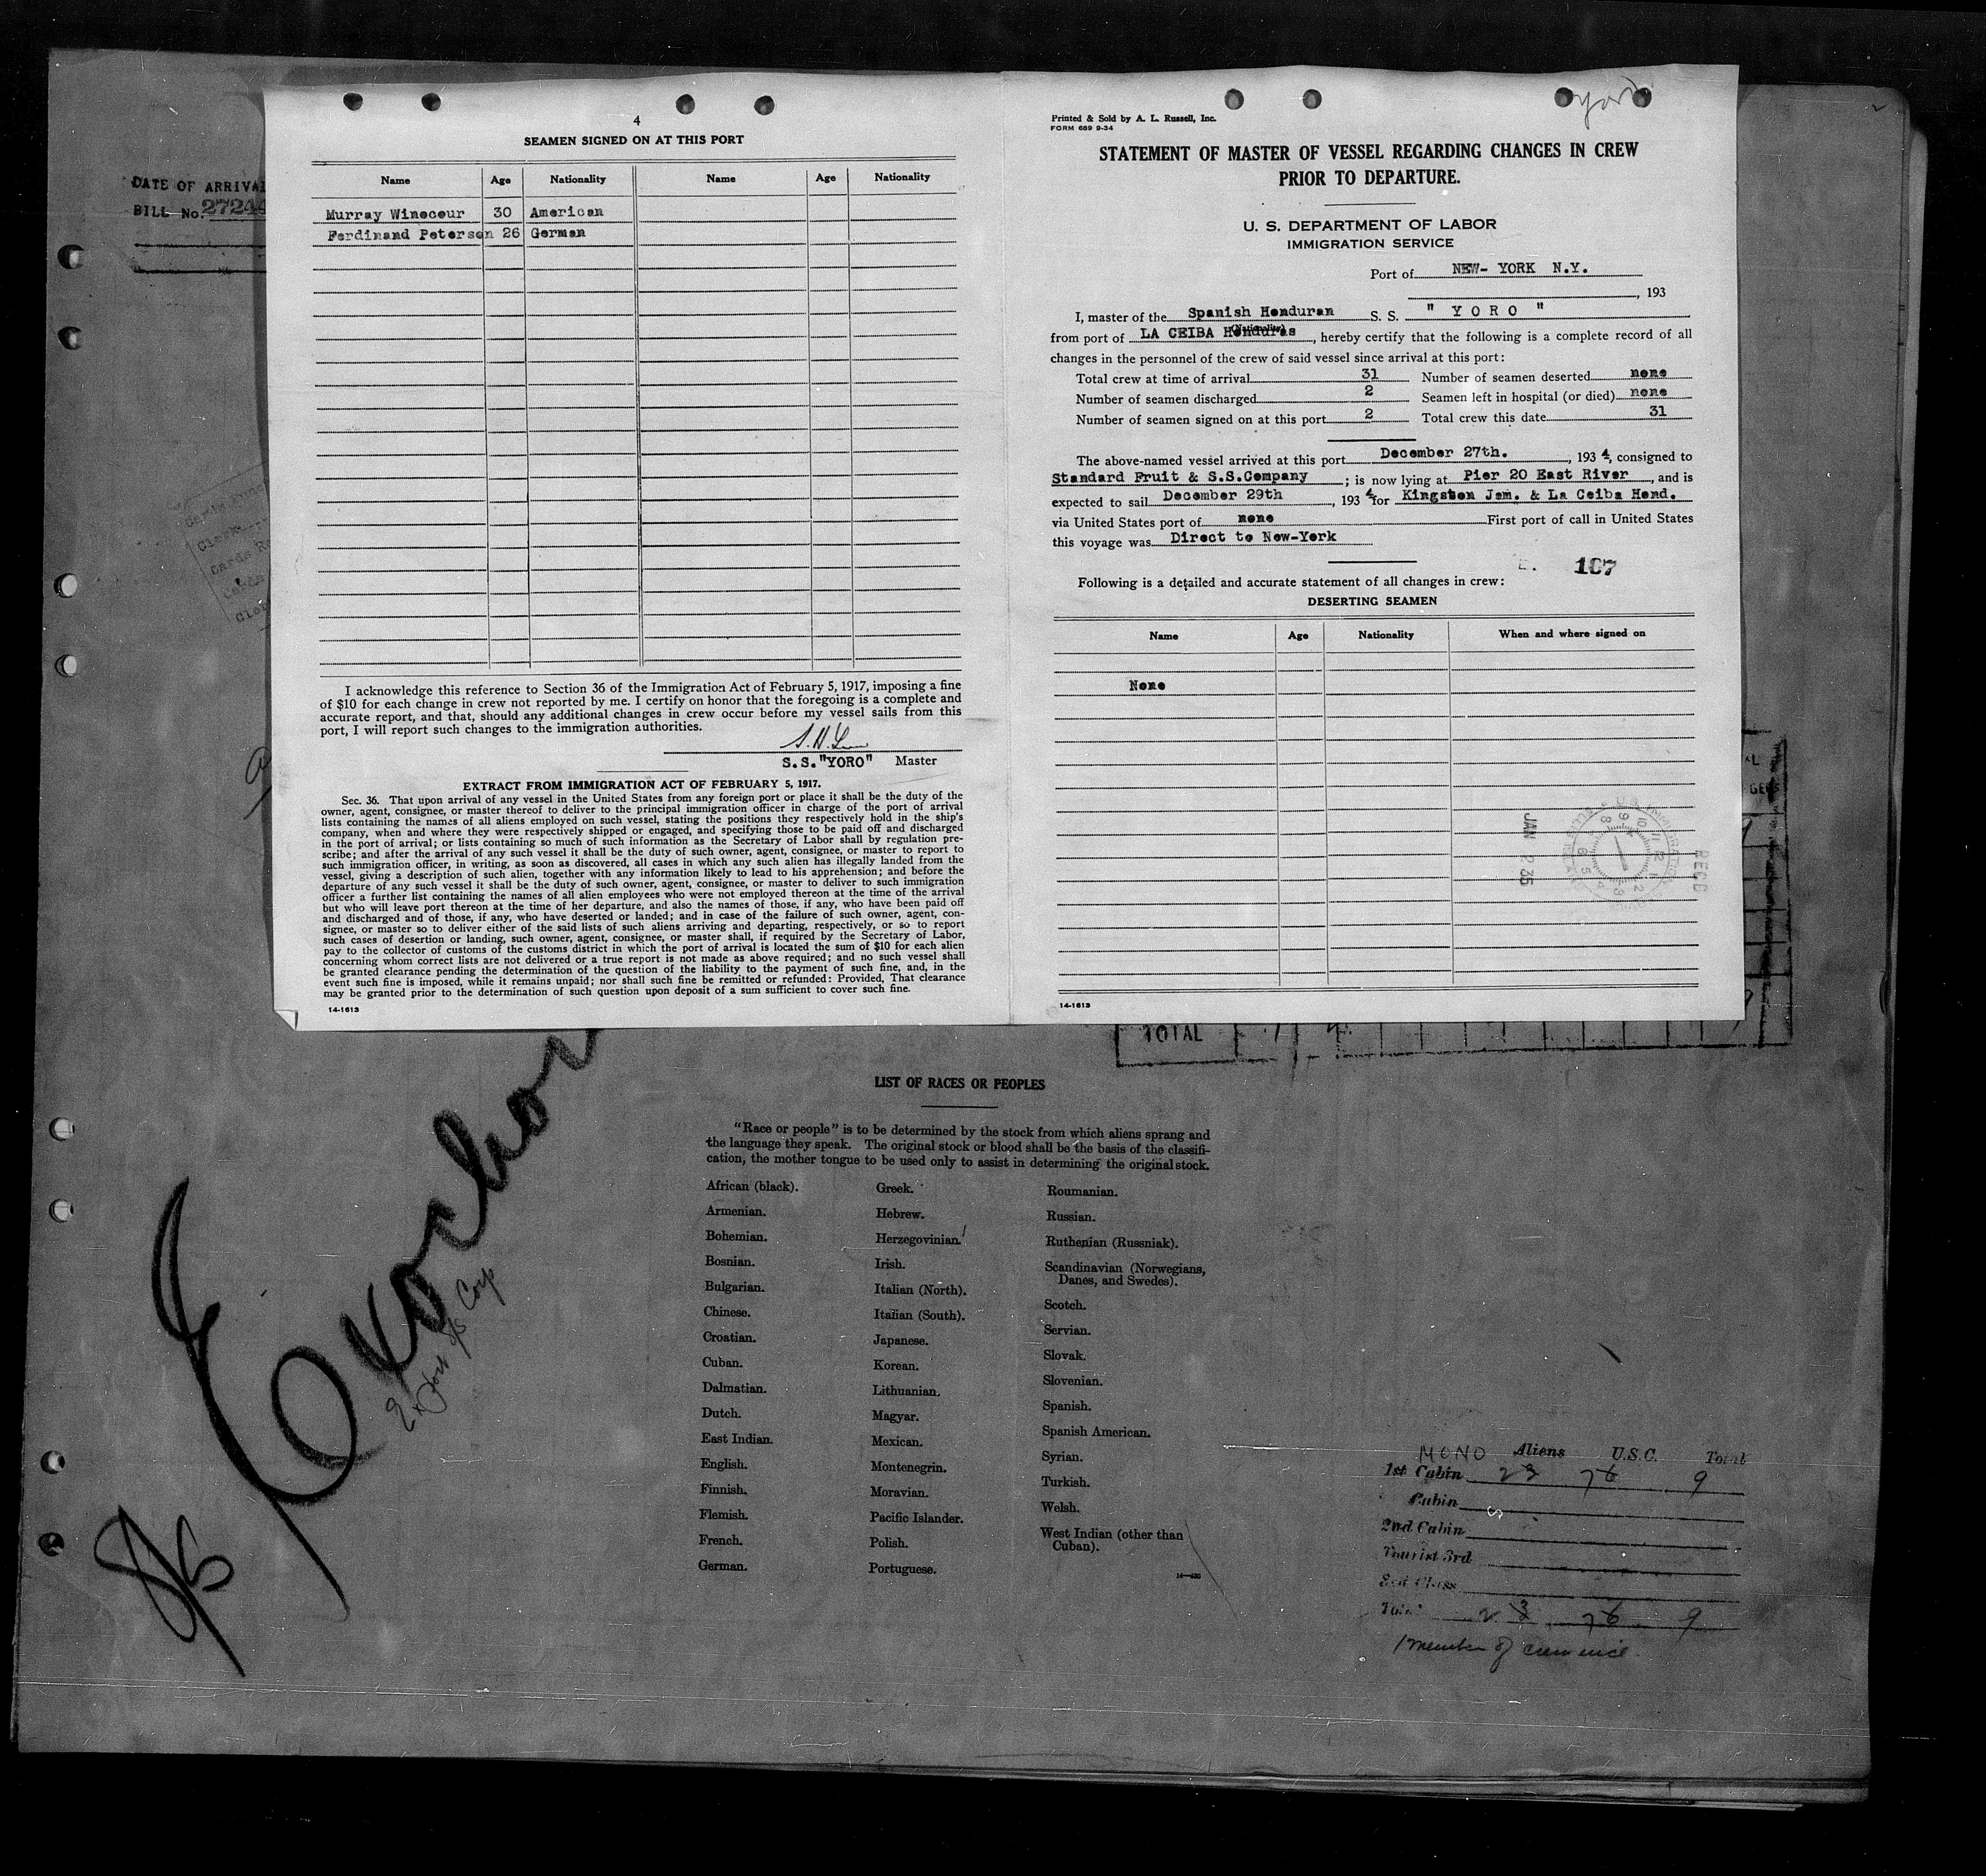 4
SEAMEN SIGNED ON AT THIS PORT
Name Age Nationality Name Age Nationality
Murray Winocour 30 American
Ferdinand Petersen 26 German
I acknowledge this reference to Section 36 of the Immigration Act of February 5, 1917, imposing a fine
of $10 for each change in crew not reported by me. I certify on honor that the foregoing is a complete and
accurate report, and that, should any additional changes in crew occur before my vessel sails from this
port, I will report such changes to the immigration authorities.
S.S."YORO" Master
EXTRACT FROM IMMIGRATION ACT OF FEBRUARY 5, 1917.
Sec. 36. That upon arrival of any vessel in the United States from any foreign port or place it shall be the duty of the
owner, agent, consignee, or master thereof to deliver to the principal immigration officer in charge of the port of arrival
lists containing the names of all aliens employed on such vessel, stating the positions they respectively hold in the ship's
company, when and where they were respectively shipped or engaged, and specifying those to be paid off and discharged
in the port of arrival; or lists containing so much of such information as the Secretary of Labor shall by regulation pre-
scribe; and after the arrival of any such vessel it shall be the duty of such owner, agent, consignee, or master to report to
such immigration officer, in writing, as soon as discovered, all cases in which any such alien has illegally landed from the
vessel, giving a description of such alien, together with any information likely to lead to his apprehension; and before the
departure of any such vessel it shall be the duty of such owner, agent, consignee, or master to deliver to such immigration
officer a further list containing the names of all alien employees who were not employed thereon at the time of the arrival
but who will leave port thereon at the time of her departure, and also the names of those, if any, who have been paid off
and discharged and of those, if any, who have deserted or landed; and in case of the failure of such owner, agent, con-
signee, or master so to deliver either of the said lists of such aliens arriving and departing, respectively, or so to report
such cases of desertion or landing, such owner, agent, consignee, or master shall, if required by the Secretary of Labor,
pay to the collector of customs of the customs district in which the port of arrival is located the sum of $10 for each alien
concerning whom correct lists are not delivered or a true report is not made as above required; and no such vessel shall
be granted clearance pending the determination of the question of the liability to the payment of such fine, and, in the
event such fine is imposed, while it remains unpaid; nor shall such fine be remitted or refunded: Provided, That clearance
may be granted prior to the determination of such question upon deposit of a sum sufficient to cover such fine.
14-1613
Yoro
Printed & Sold by A. L. Russell, Inc.
FORM 689 9-34
STATEMENT OF MASTER OF VESSEL REGARDING CHANGES IN CREW
PRIOR TO DEPARTURE.
U. S. DEPARTMENT OF LABOR
IMMIGRATION SERVICE
Port of NEW- YORK N.Y.
, 193
I, master of the Spanish Honduran S. S. " Y O R O "
(Nationality)
from port of LA CEIBA Honduras, hereby certify that the following is a complete record of all
changes in the personnel of the crew of said vessel since arrival at this port:
Total crew at time of arrival 31 Number of seamen deserted none
Number of seamen discharged 2 Seamen left in hospital (or died) none
Number of seamen signed on at this port 2 Total crew this date 31
The above-named vessel arrived at this port December 27th. , 193 4, consigned to
Standard Fruit & S.S.Company ; is now lying at Pier 20 East River , and is
expected to sail December 29th , 193 4 for Kingston Jam. & La Ceiba Hond.
via United States port of none First port of call in United States
this voyage was Direct to New-York
167
Following is a detailed and accurate statement of all changes in crew:
DESERTING SEAMEN
Name Age Nationality When and where signed on
None
JAN 2 35
RECD
14-1613
DATE OF ARRIVAL
BILL No. 2724
TOTAL
LIST OF RACES OR PEOPLES
"Race or people" is to be determined by the stock from which aliens sprang and
the language they speak. The original stock or blood shall be the basis of the classifi-
cation, the mother tongue to be used only to assist in determining the original stock.
African (black). Greek. Roumanian.
Armenian. Hebrew. Russian.
Bohemian. Herzegovinian. Ruthenian (Russniak).
Bosnian. Irish. Scandinavian (Norwegians,
Danes, and Swedes).
Bulgarian. Italian (North).
Chinese. Italian (South). Scotch.
Croatian. Japanese. Servian.
Cuban. Korean. Slovak.
Dalmatian. Lithuanian. Slovenian.
Dutch. Magyar. Spanish.
East Indian. Mexican. Spanish American.
English. Montenegrin. Syrian.
Finnish. Moravian. Turkish.
Flemish. Pacific Islander. Welsh.
French. Polish. West Indian (other than
Cuban).
German. Portuguese.
S/S Exochor
Export S/S Corp
MONO Aliens U.S.C. Total
1st Cabin 2 3 7 6 9
Cabin
2nd Cabin
Tourist 3rd
3rd Class
Total 2 3 7 6 9
1 member of crew